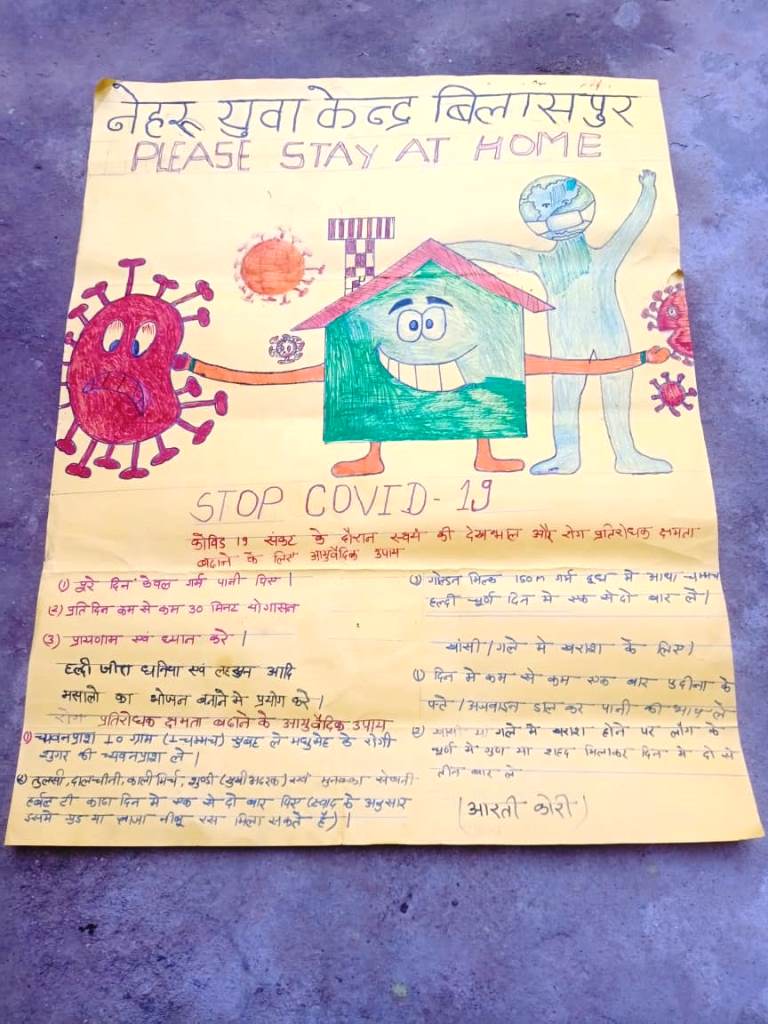 नेहरू युवा केन्द्र बिलासपुर
PLEASE STAY AT HOME
STOP COVID-19
कोविड 19 संकट के दौरान स्वयं की देखभाल और रोग प्रतिरोधक क्षमता
बढाने के लिए आयुर्वेदिक उपाय
(1) पूरे दिन केवल गर्म पानी पिए ।
(2) प्रति दिन कम से कम 30 मिनट योगासन
(3) प्रायणाम एवं ध्यान करे ।
हल्दी जीरा धनिया एवं लहसुन आदि
मसालो का भोजन बनाने मे प्रयोग करे ।
रोग प्रतिरोधक क्षमता बढाने के आयुर्वेदिक उपाय
(1) च्यवनप्राश 10 ग्राम (1 चम्मच) सुबह ले मधुमेह के रोगी
शुगर की च्यवनप्राश ले ।
(2) तुलसी, दालचीनी, काली मिर्च, शुण्ठी (सुखी अदरक) एवं मुनक्का से बनी
हर्बल टी काढा दिन मे एक से दो बार पिए (स्वाद के अनुसार
इसमे गुड या ताजा नीबू रस मिला सकते है) ।
(3) गोल्डन मिल्क 150m गर्म दूध मे आधा चम्मच
हल्दी चूर्ण दिन मे एक से दो बार ले ।
खांसी / गले मे खराश के लिए ।
(1) दिन मे कम से कम एक बार पुदीना के
पत्ते / अजवाइन डाल कर पानी की भाप ले
(2) खांसी या गले मे खराश होने पर लौंग के
चूर्ण मे गुण या शहद मिलाकर दिन मे दो से
तीन बार ले
(आरती कोरी)